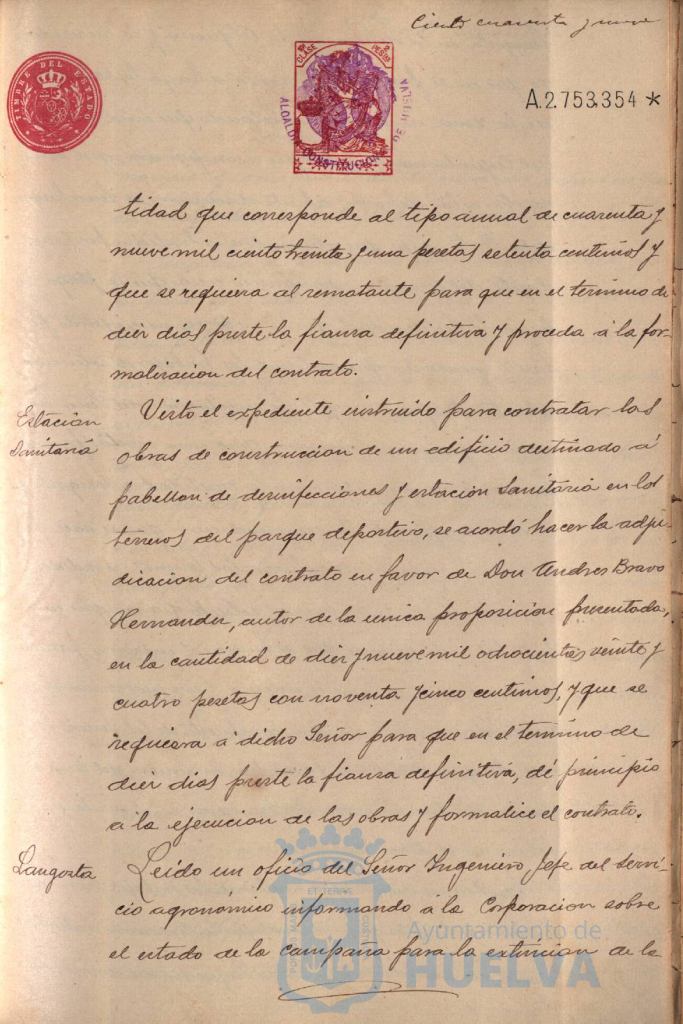 Ciento cuarenta y nueve
TIMBRE DEL ESTADO
CLASE
PESETAS
ALCALDIA CONSTITUCIONAL DE HUELVA
A.2.753.354 *
tidad que corresponde al tipo anual de cuarenta y
nueve mil ciento treinta y una pesetas setenta centimos y
que se requiera al rematante para que en el termino de
diez dias preste la fianza definitiva y proceda á la for-
malizacion del contrato.
Estacion
Sanitaria
Visto el expediente instruido para contratar las
obras de construccion de un edificio destinado á
pabellon de desinfecciones y estacion Sanitaria en los
terrenos del parque deportivo, se acordó hacer la adju-
dicacion del contrato en favor de Don Andres Bravo
Hernandez, autor de la unica proposicion presentada,
en la cantidad de diez y nueve mil ochocientas veinte y
cuatro pesetas con noventa y cinco centimos, y que se
requiera á dicho Señor para que en el termino de
diez dias preste la fianza definitiva, dé principio
a la ejecucion de las obras y formalice el contrato.
Langosta
Leido un oficio del Señor Ingeniero Jefe del Servi-
cio agronómico informando á la Corporacion sobre
el estado de la campaña para la extincion de la
Ayuntamiento de
HUELVA